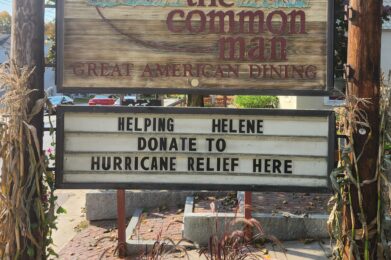 the
common
man
GREAT AMERICAN DINING
HELPING HELENE
DONATE TO
HURRICANE RELIEF HERE